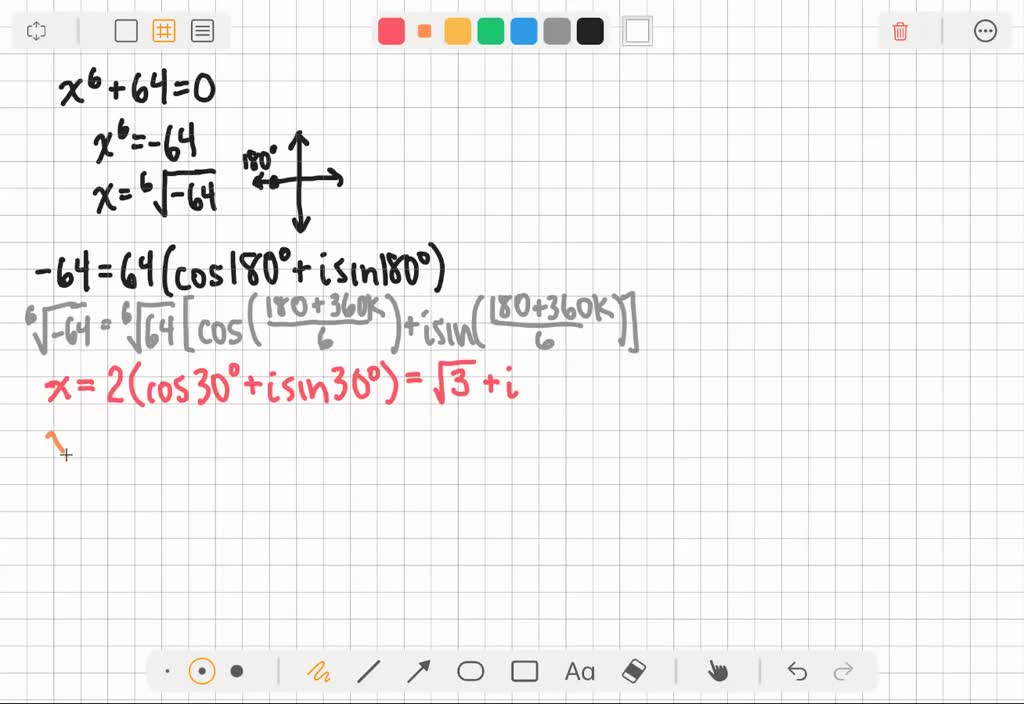 x⁶+64=0
x⁶=-64
180°
x=⁶√-64
-64=64(cos180°+isin180°)
⁶√-64=⁶√64[cos(180+360k/6)+isin(180+360k/6)]
x=2(cos30°+isin30°)=√3+i
Aa